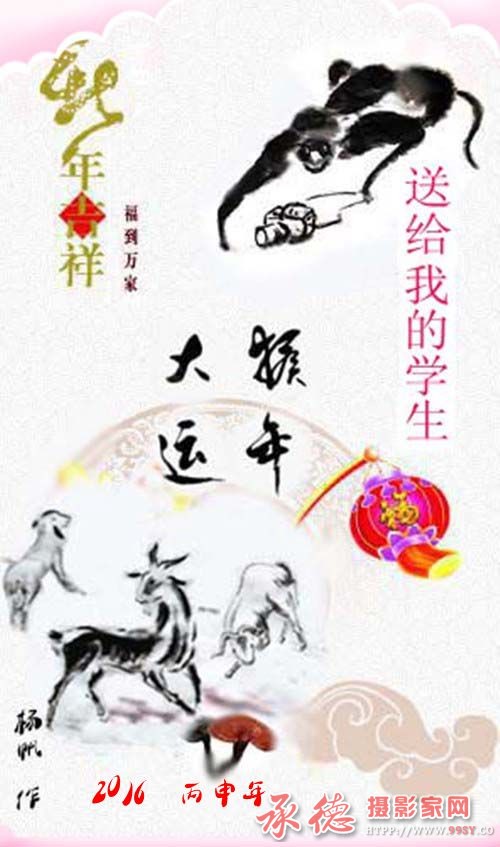 新年吉祥
福到万家
送给我的学生
猴年
大运
福
杨帆作
2016 丙申年
承德摄影家网
HTTP://WWW.99SY.CO